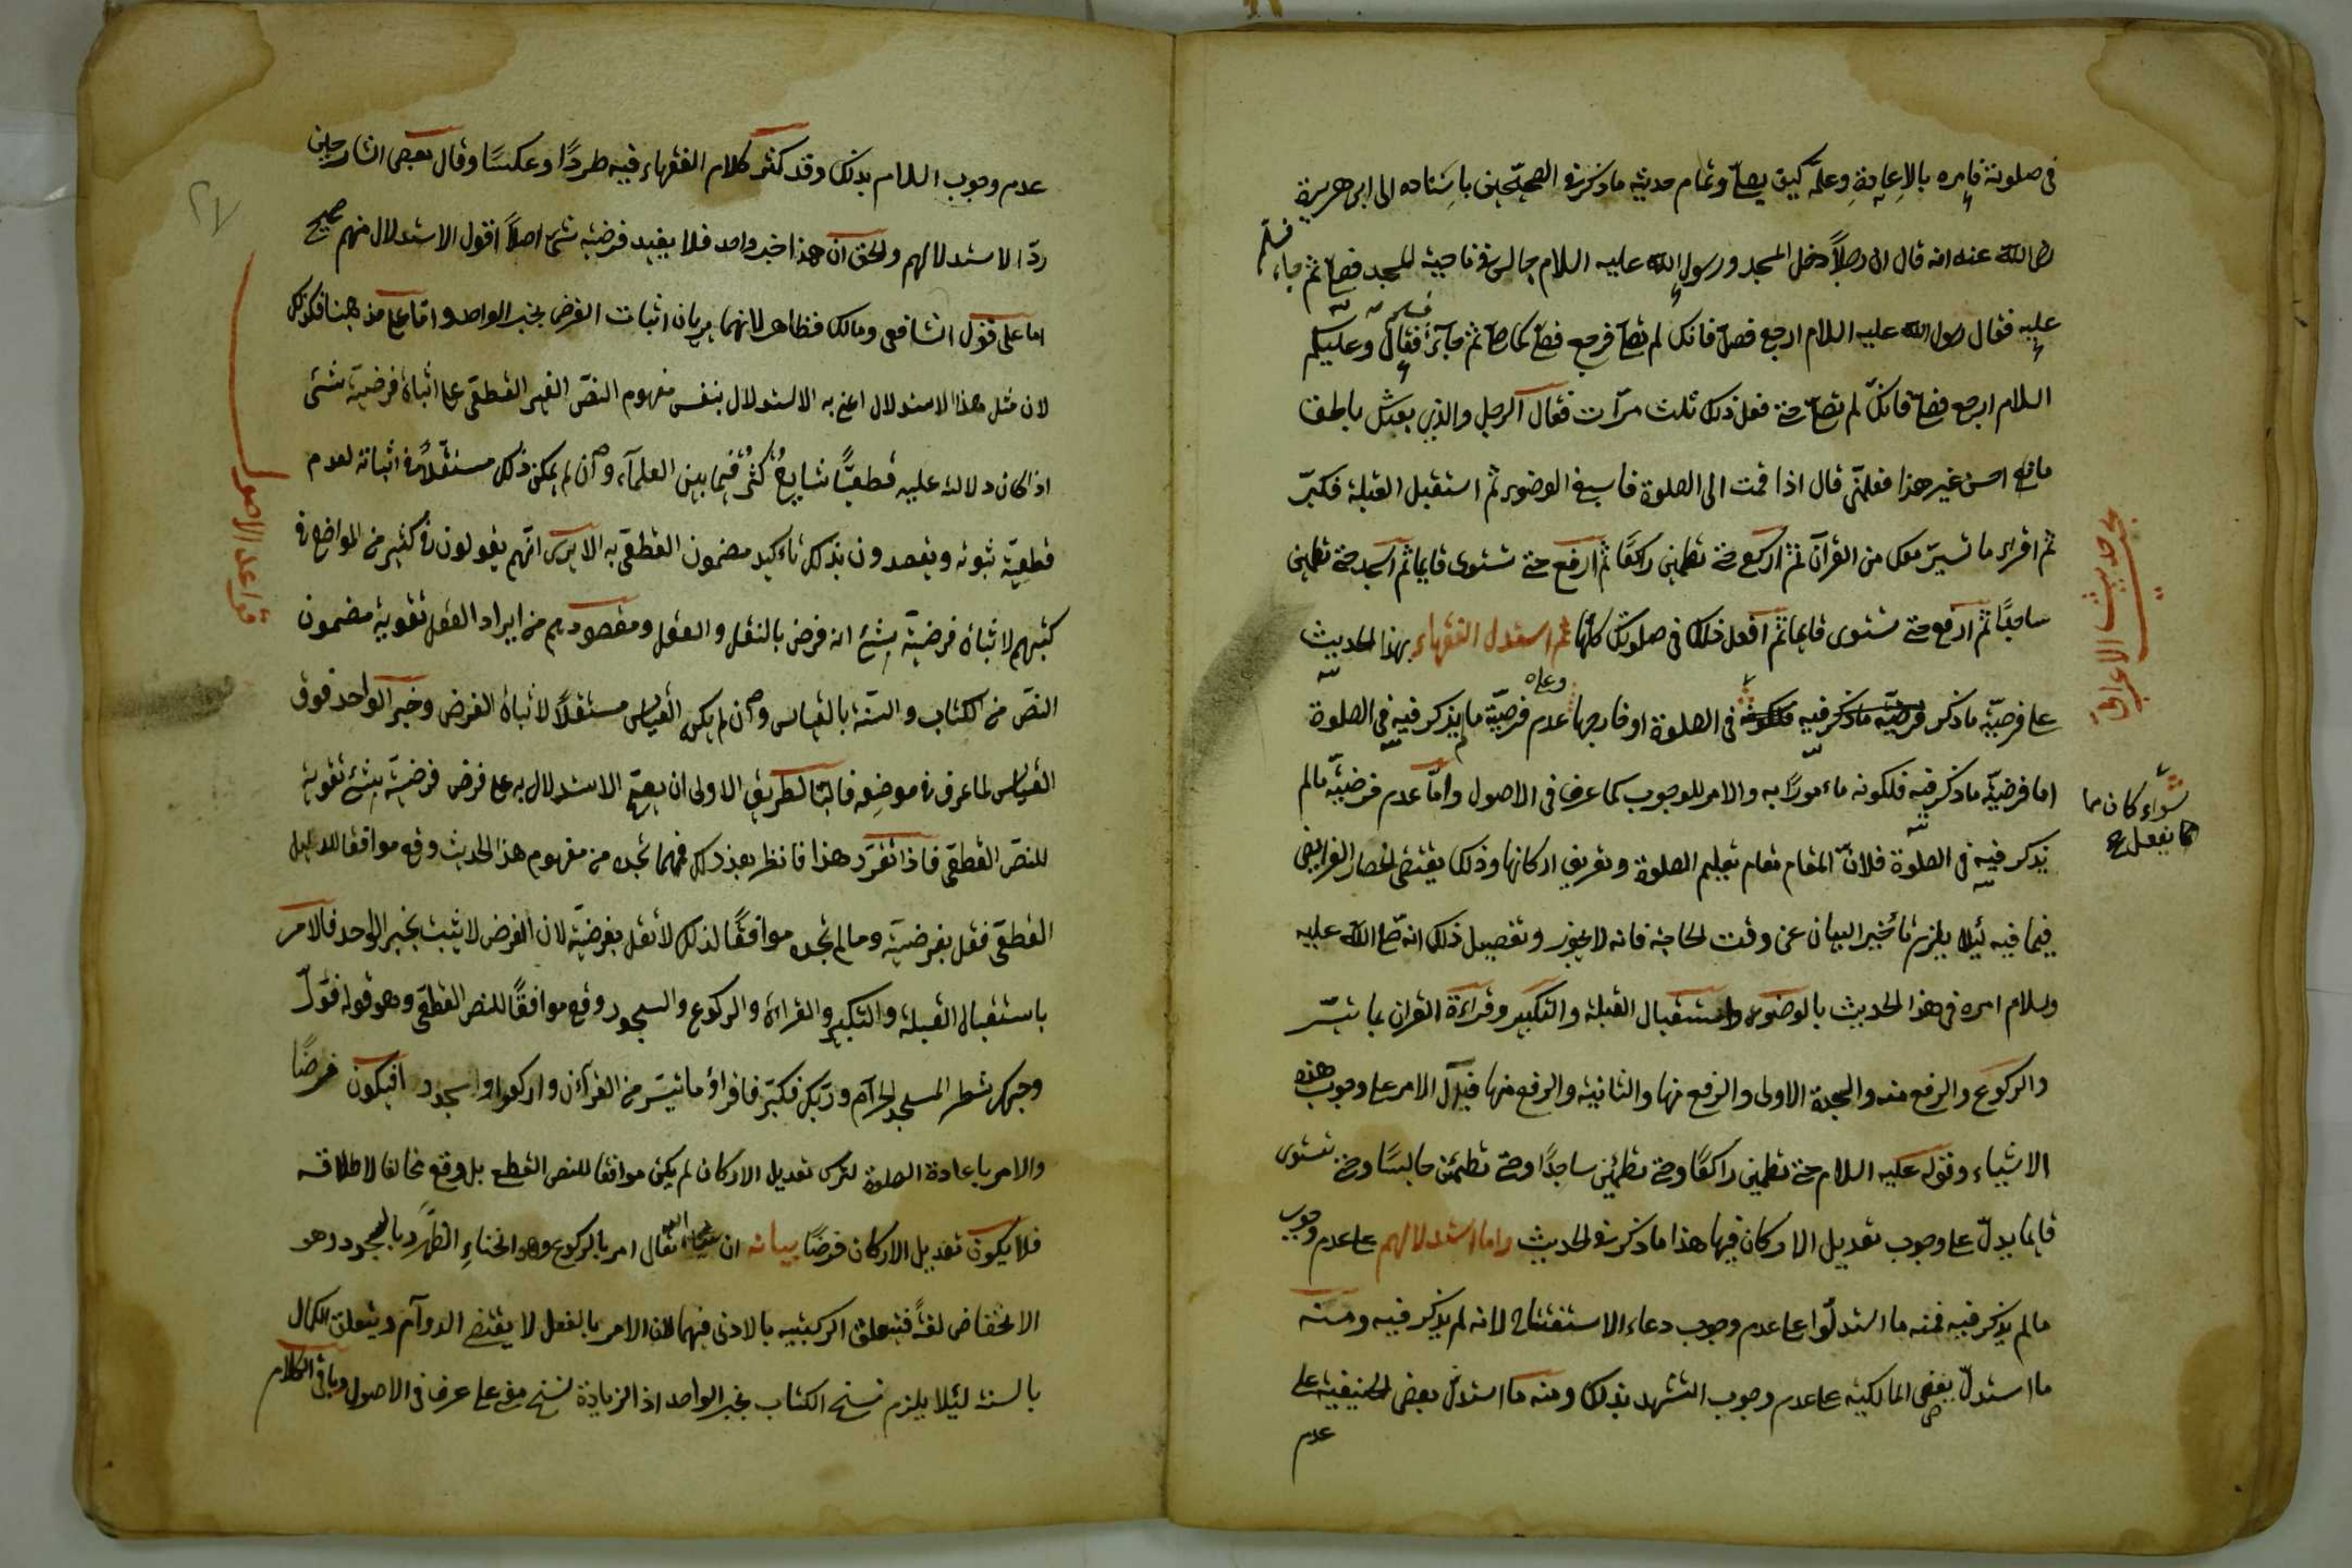 في صلوته فامره بالاعادة وعلمه كيف يصلي وتمام حديثه ما ذكر في الصحيحين باسناده الى ابي هريرة
رضي الله عنه انه قال ان رجلاً دخل المسجد ورسول الله عليه السلام جالس في ناحية المسجد فصلى ثم جاء فسلم
عليه فقال رسول الله عليه السلام ارجع فصل فانك لم تصل فرجع فصلى كما صلى ثم جاء فسلم فقال وعليكم
السلام ارجع فصل فانك لم تصل حتى فعل ذلك ثلث مرات فقال الرجل والذي بعثك بالحق
ما احسن غير هذا فعلمني قال اذا قمت الى الصلوة فاسبغ الوضوء ثم استقبل القبلة فكبر
ثم اقرأ ما تيسر معك من القرآن ثم اركع حتى تطمئن راكعًا ثم ارفع حتى تستوى قايما ثم اسجد حتى تطمئن
ساجدًا ثم ارفع حتى تستوى قايما ثم افعل ذلك في صلوتك كلها ثم استدل الفقهاء بهذا الحديث
على فرضية ما ذكر فيه في الصلوة او خارجها وعلى عدم فرضية ما لم يذكر فيه في الصلوة
اما فرضية ما ذكر فيه فلكونه مامورًا به والامر للوجوب كما عرف في الاصول واما عدم فرضية ما لم
يذكر فيه في الصلوة فلان المقام مقام تعليم الصلوة وتعريف اركانها وذلك يقتضي انحصار الفرايض
فيما فيه لئلا يلزم تأخير البيان عن وقت الحاجة فانه لا يجوز وتفصيل ذلك انه صلى الله عليه
وسلام امره في هذا الحديث بالوضوء واستقبال القبلة والتكبير وقراءة القران بما تيسر
والركوع والرفع منه والسجدة الاولى والرفع منها والثانية والرفع منها فيدل الامر على وجوب هذه
الاشياء وقوله عليه السلام حتى تطمئن راكعًا وحتى تطمئن ساجدًا وحتى تطمئن جالسًا وحتى تستوى
قايما يدل على وجوب تعديل الاركان فيها هذا ما ذكر في الحديث واما استدلالهم على عدم وجوب
ما لم يذكر فيه فمنه ما استدلوا على عدم وجوب دعاء الاستفتاح لانه لم يذكر فيه ومنه
ما استدل بعض المالكية على عدم وجوب التشهد بذلك ومنه ما استدل بعض الحنيفية على
عدم
بحث حديث الاعرابي
سواء كان مما
يفعل
عدم وجوب السلام بذلك وقد كثر كلام الفقهاء فيه طردًا وعكسًا وقال بعض الشارحين
ردّ الاستدلالهم والحق ان هذا خبر واحد فلا يفيد فرضية شئ اصلاً اقول الاستدلال منهم صحيح
اما على قول الشافعي ومالك فظاهر لانهما يريان اثبات الفرض بخبر الواحد واما على مذهبنا فكذلك
لان مثل هذا الاستدلال اعني به الاستدلال بنفس مفهوم النص الغير القطعي على اثبات فرضية شئ
اذا كان دلالته عليه قطعيًّا شايع كثر فيما بين العلماء وان لم يكن ذلك مستقلاً في اثباته لعدم
قطعية ثبوته ويقصدون بذلك تاكيد مضمون القطعي به الا يرى انهم يقولون في كثير من المواضع في
كتبهم لاثبات فرضية شئ انه فرض بالنقل والعقل ومقصودهم من ايراد العقل تقوية مضمون
النص من الكتاب والسنة بالقياس وان لم يكن القياس مستقلاً لاثبات الفرض وخبر الواحد فوق
القياس لما عرف في موضعه فبالطريق الاولى ان يصح الاستدلال به على فرض فرضية شئ تقوية
للنص القطعي فاذا تقرر هذا فانظر بعد ذلك فمهما تجده من مفهوم هذا الحديث وقع موافقا للدليل
القطعي فقل بفرضيته وما لم تجده موافقًا لذلك لا تقل بفرضيته لان الفرض لا يثبت بخبر الواحد فالامر
باستقبال القبلة والتكبير والقراءة والركوع والسجود وقع موافقًا للنص القطعي وهو قوله فولّ
وجهك شطر المسجد الحرام وربك فكبر فاقرؤا ما تيسر من القرآن واركعوا واسجدوا فيكون فرضًا
والامر باعادة الصلوة لترك تعديل الاركان لم يكن موافقا للنص القطعي بل وقع مخالفا لاطلاقه
فلا يكون تعديل الاركان فرضًا بيانه ان الله تعالى امر بالركوع وهو انحناء الظهر وبالسجود وهو
الانخفاض لغةً فتتعلق الركنية بالادنى فيهما لان الامر بالفعل لا يقتضي الدوام ويتعلق الكمال
بالسنة لئلا يلزم نسخ الكتاب بخبر الواحد اذ الزيادة نسخ على عرف في الاصول وباقي الكلام
قواعد الاصول
٢٧